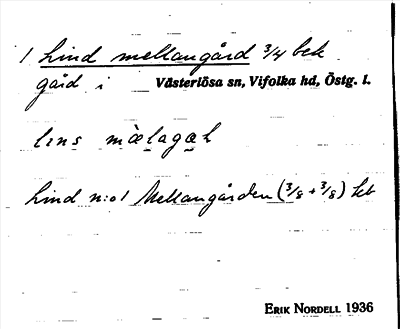 1 Lind mellangård 3/4 bek
gård i Västerlösa sn, Vifolka hd, Östg. l.
lıns mælagæḷ
Lind n:o1 Mellangården (3/8 + 3/8)
ERIK NORDELL 1936